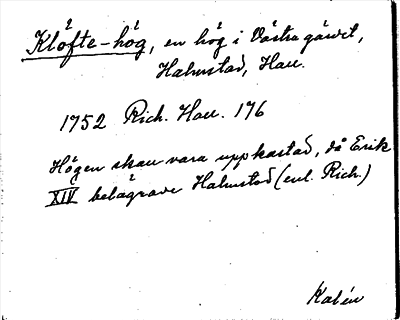 Klöfte-hög, en hög i Västra gärdet,
Halmstad, Hall.
1752 Rich. Hall. 176
Högen skall vara uppkastad, då Erik
XIV belägrade Halmstad (enl. Rich.)
Kalén